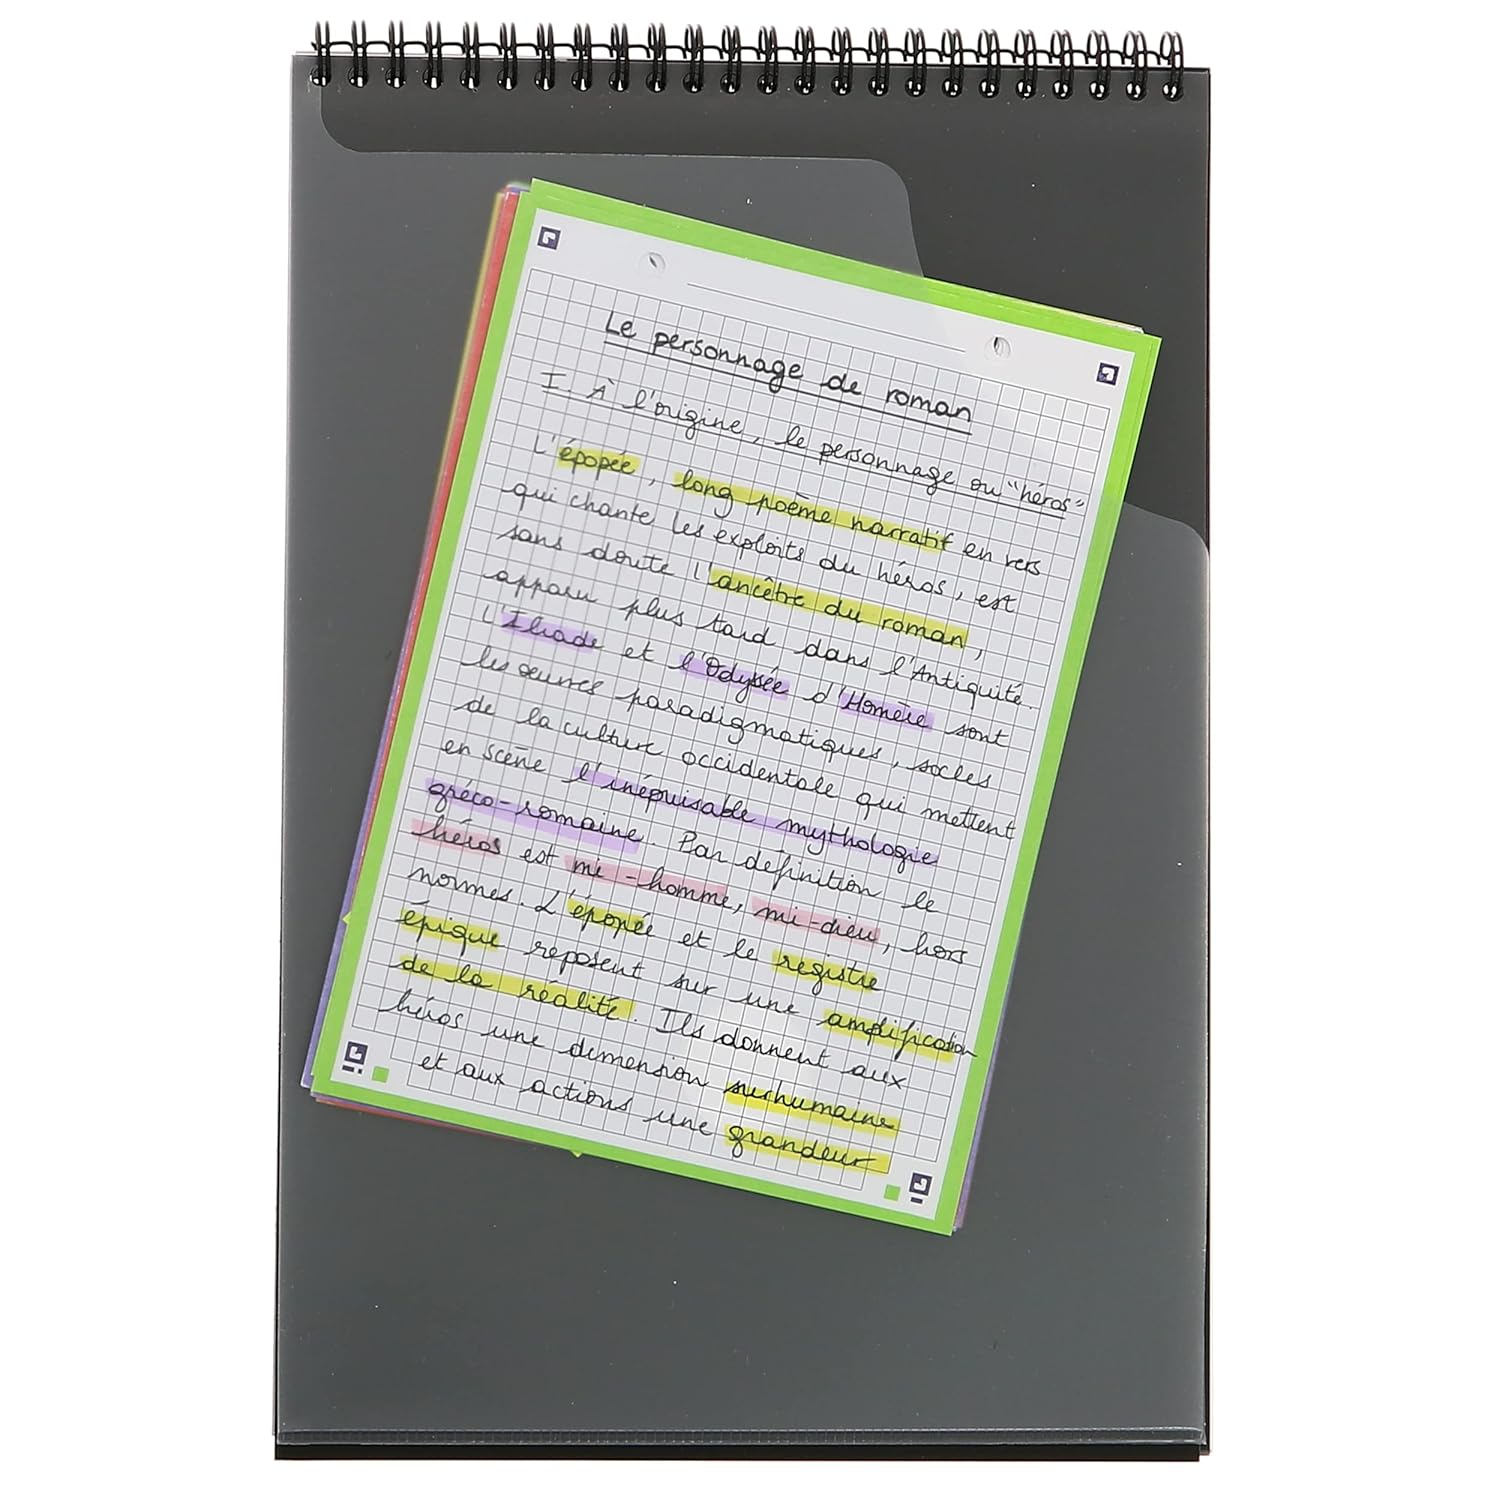 Le personnage de roman
I. À l'origine, le personnage ou "héros"
L'épopée, long poème narratif en vers
qui chante les exploits du héros, est
sans doute l'ancêtre du roman,
apparu plus tard dans l'Antiquité.
L'Iliade et l'Odyssée d'Homère sont
les œuvres paradigmatiques, socles
de la culture occidentale qui mettent
en scène l'inépuisable mythologie
gréco-romaine. Par définition le
héros est mi-homme, mi-dieu, hors
normes. L'épopée et le registre
épique reposent sur une amplification
de la réalité. Ils donnent aux
héros une dimension surhumaine
et aux actions une grandeur